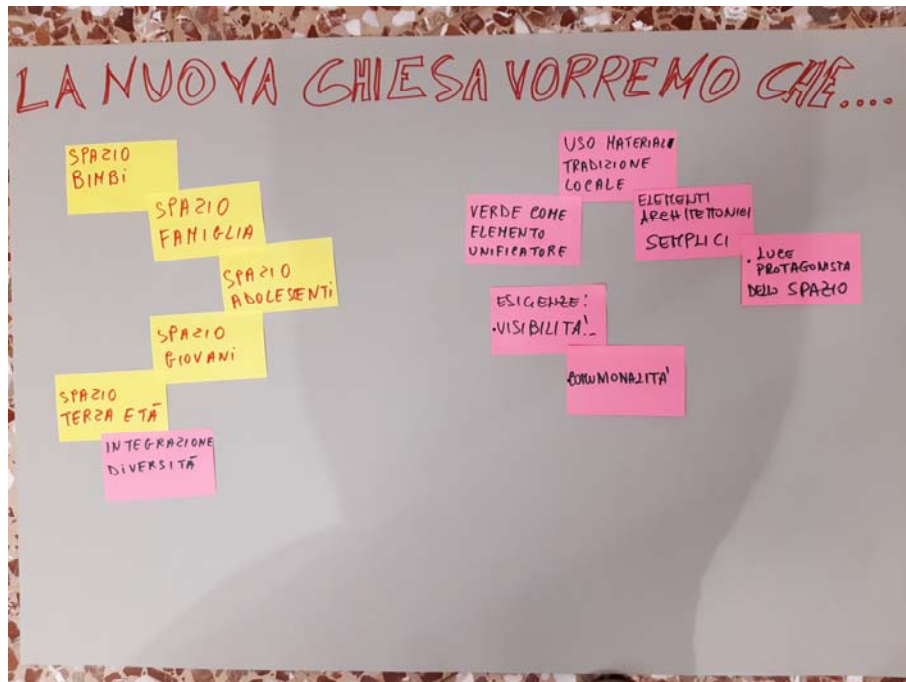 LA NUOVA CHIESA VORREMO CHE....
SPAZIO
BIMBI
SPAZIO
FAMIGLIA
SPAZIO
ADOLESENTI
SPAZIO
GIOVANI
SPAZIO
TERZA ETÀ
INTEGRAZIONE
DIVERSITÀ
USO MATERIALI
TRADIZIONE
LOCALE
VERDE COME
ELEMENTO
UNIFICATORE
ELEMENTI
ARCHITETTONICI
SEMPLICI
. LUCE
PROTAGONISTA
DELLO SPAZIO
ESIGENZE:
.VISIBILITA'
COMUNIONALITA'